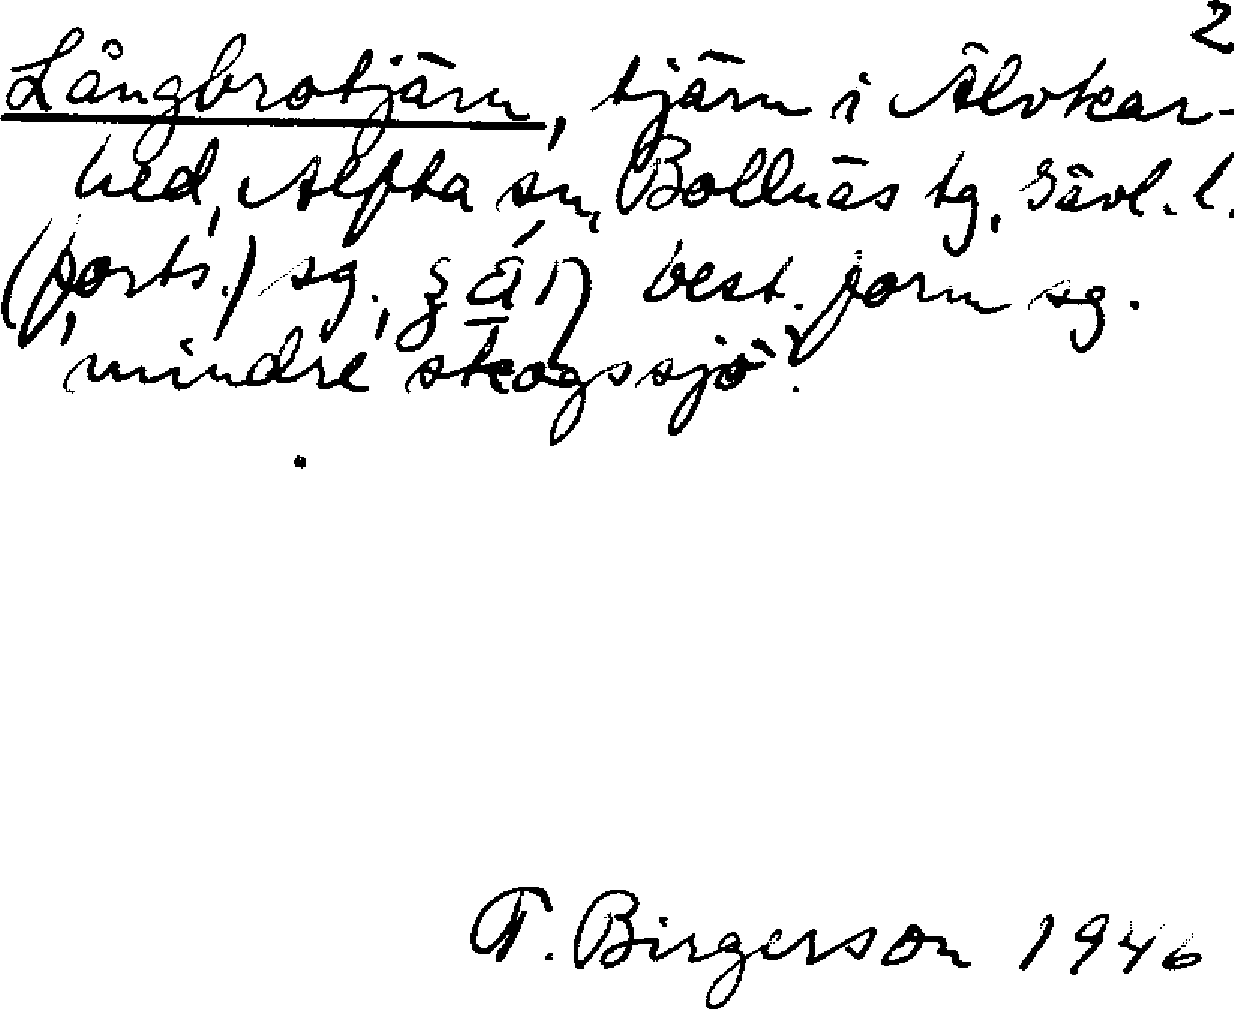 2
Långbrotjärn, tjärn i Älvkar-
hed, Alfta sn, Bollnäs tg, Gävl. l.
(forts.) sg., best. form sg.
"mindre skogssjö".
T. Birgerson 1946